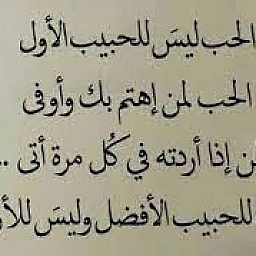 الحب ليسَ للحبيب الأول
الحب لمن إهتم بك وأوفى
إذا أردته في كُل مرة أتى ..
للحبيب الأفضل وليسَ